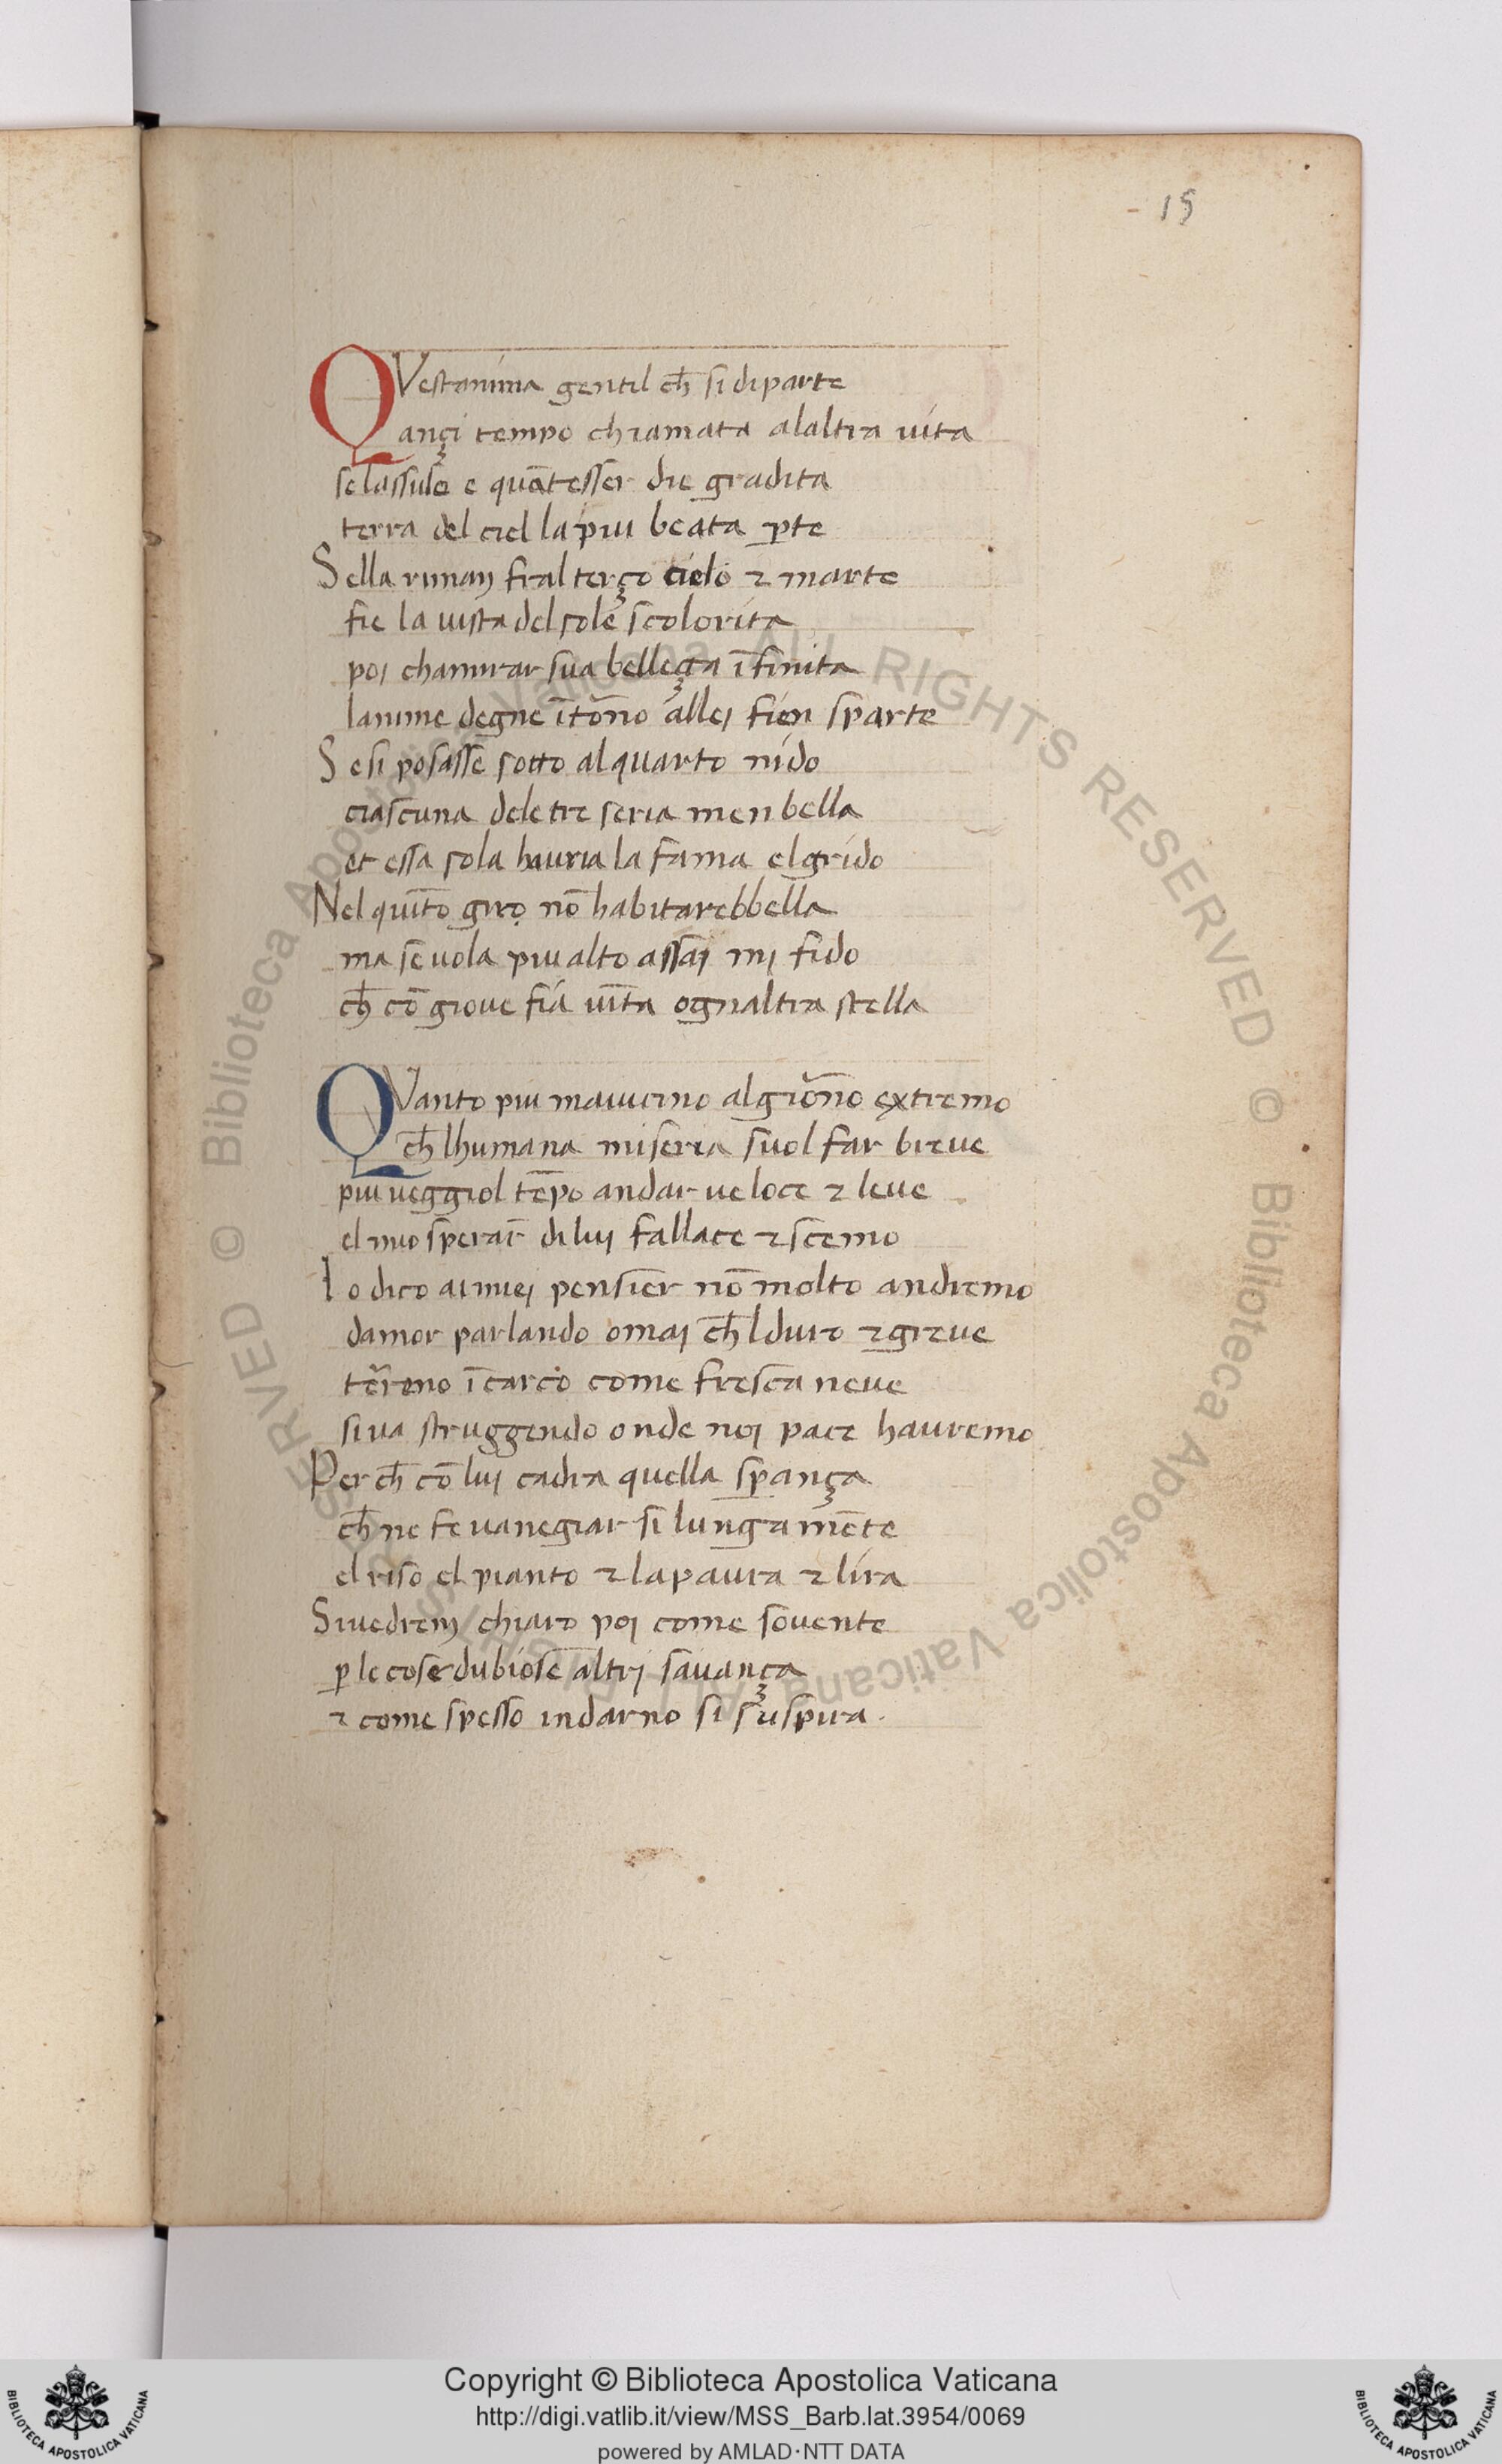 15
QVestanima gentil ch̄ si diparte
ançi tempo chiamata alaltra uita
se lassuso e quātesser die gradita
terra del ciel la piu beata ꝑte
Sella riman fral terço cielo ⁊ marte
fie la uista del sole scolorita
poi chamirar sua belleça īfinita
lanime degne ītōno allei fien sparte
Se si posasse sotto al quarto nido
ciascuna dele tre seria men bella
et essa sola hauria la fama el grido
Nel quīto giro nō habitarebbella
ma se uola piu alto assai mi fido
ch̄ cō gioue fia uīta ognaltra stella
QVanto piu mauicino al giōno extremo
ch̄ lhumana miseria suol far breue
piu ueggiol tēpo andar ueloce ⁊ leue
el mio sperar̄ di lui fallace ⁊ scemo
Io dico ai miei pensier nō molto andremo
damor parlando omai ch̄l duro ⁊ greue
tēreno īcarco come fresca neue
si ua struggendo onde noi pace hauremo
Per ch̄ cō lui cadra quella sꝑança
ch̄ ne fe uanegiar si lungamēte
el riso el pianto ⁊ la paura ⁊ lira
Si uedrem chiaro poi come souente
ꝑ le cose dubiose altri sauança
⁊ come spesso indarno si suspira.
© Biblioteca Apostolica Vaticana ALL RIGHTS RESERVED © Biblioteca Apostolica Vaticana ALL RIGHTS RESERVED
Copyright © Biblioteca Apostolica Vaticana
http://digi.vatlib.it/view/MSS_Barb.lat.3954/0069
powered by AMLAD·NTT DATA
BIBLIOTECA APOSTOLICA VATICANA
BIBLIOTECA APOSTOLICA VATICANA